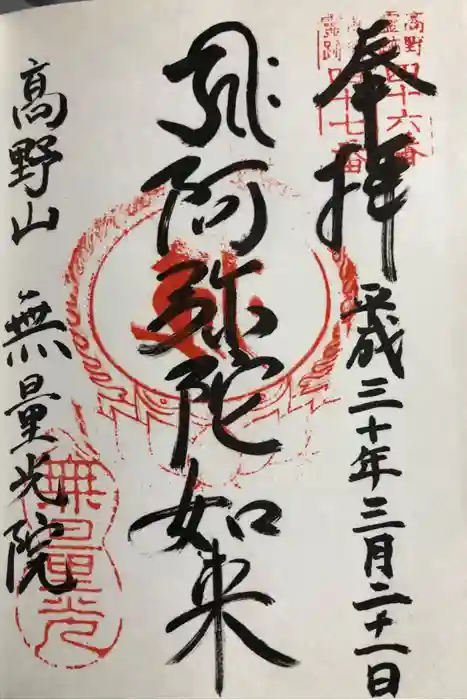 奉拝
平成三十年三月二十一日
𑖮𑖿𑖨𑖱𑖾 阿弥陀如来
高野山 無量光院
高野
霊跡
四十六番
四十七番
無量光